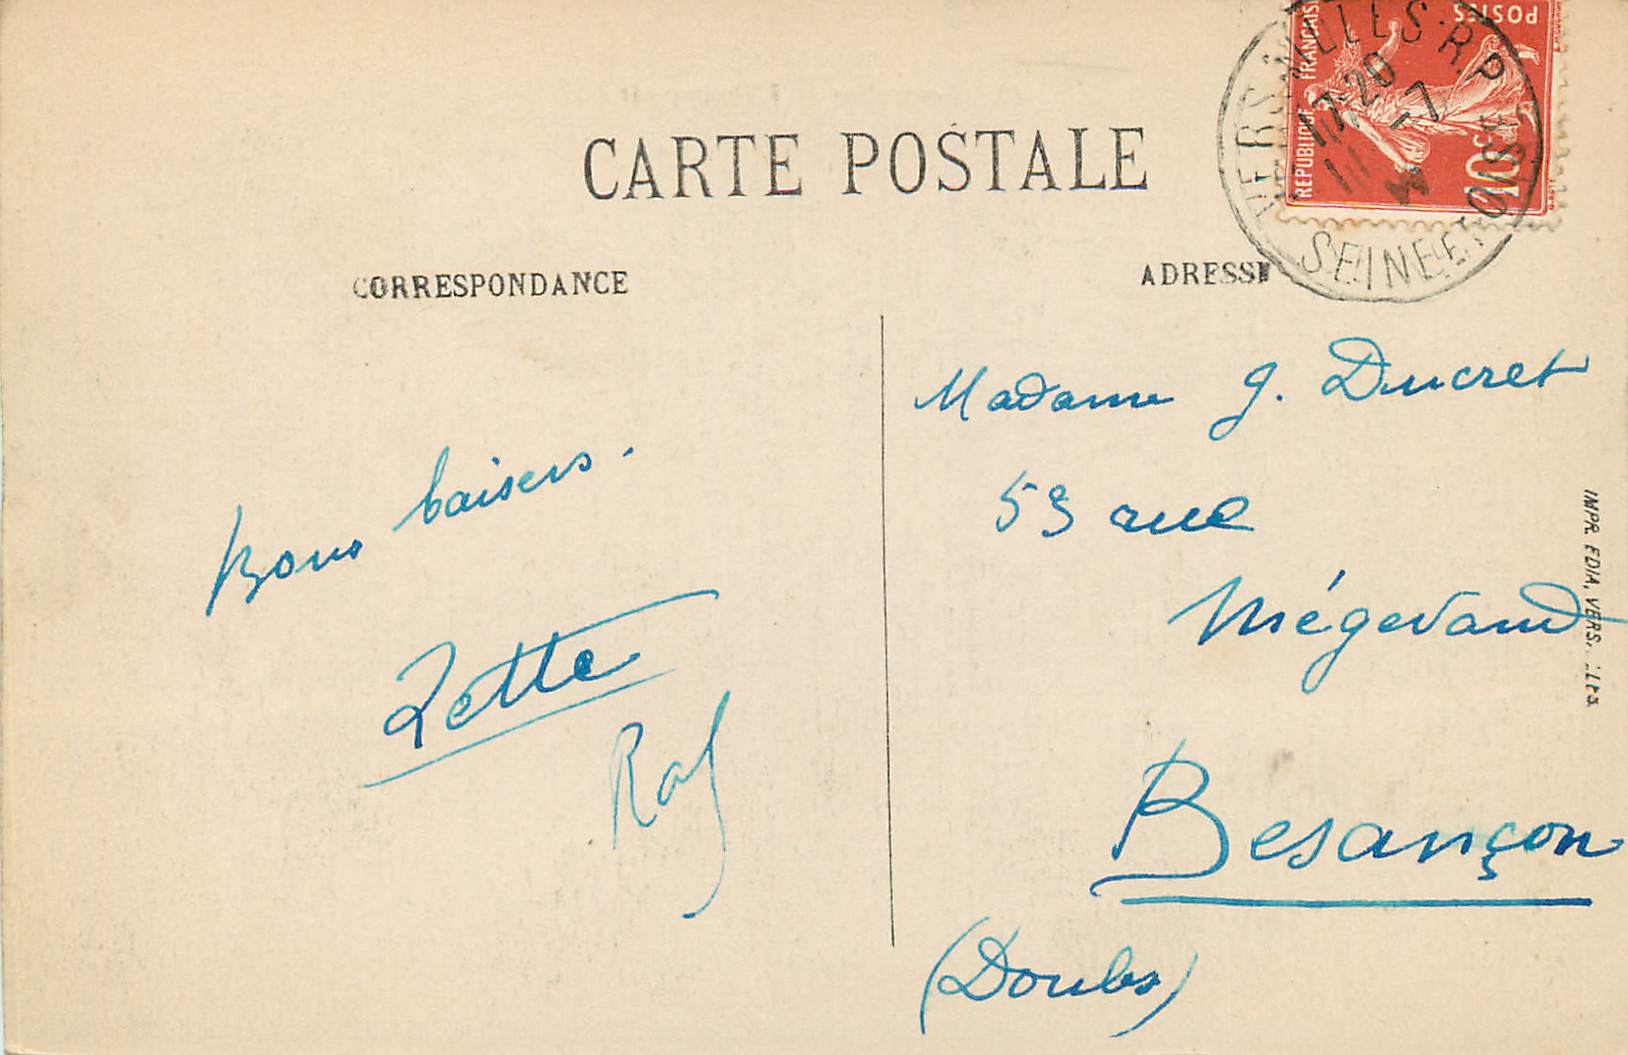 CARTE POSTALE
CORRESPONDANCE
ADRESSE
RÉPUBLIQUE FRANÇAISE
POSTES
10c
VERSAILLES R.P.
17-20
-7
SEINE ET OISE
Bons baisers.
Zette
Raf
Madame G. Ducret
53 rue
Mégevand
Besançon
(Doubs)
IMPR. EDIA, VERSAILLES